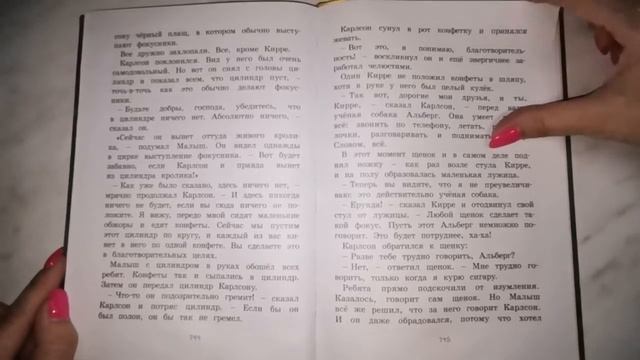 тому чёрный плащ, в котором обычно высту-
пают фокусники.
Все дружно захлопали. Все, кроме Кирре.
Карлсон поклонился. Вид у него был очень
самодовольный. Но вот он снял с головы ци-
линдр и показал всем, что цилиндр пуст, –
точь-в-точь как это обычно делают фокус-
ники.
– Будьте добры, господа, убедитесь, что
в цилиндре ничего нет. Абсолютно ничего, –
сказал он.
«Сейчас он вынет оттуда живого кроли-
ка, – подумал Малыш. Он видел однажды
в цирке выступление фокусника. – Вот будет
забавно, если Карлсон и правда вынет
из цилиндра кролика!»
– Как уже было сказано, здесь ничего нет, –
мрачно продолжал Карлсон. – И здесь никогда
ничего не будет, если вы сюда ничего не по-
ложите. Я вижу, передо мной сидят маленькие
обжоры и едят конфеты. Сейчас мы пустим
этот цилиндр по кругу, и каждый из вас ки-
нет в него по одной конфете. Вы сделаете это
в благотворительных целях.
Малыш с цилиндром в руках обошёл всех
ребят. Конфеты так и сыпались в цилиндр.
Затем он передал цилиндр Карлсону.
– Что-то он подозрительно гремит! – сказал
Карлсон и потряс цилиндр. – Если бы он
был полон, он бы так не гремел.
744
Карлсон сунул в рот конфетку и принялся
жевать.
– Вот это, я понимаю, благотворитель-
ность! – воскликнул он и ещё энергичнее за-
работал челюстями.
Один Кирре не положил конфеты в шляпу,
хотя в руке у него был целый кулёк.
– Так вот, дорогие мои друзья, и ты,
Кирре, – сказал Карлсон, – перед вами
учёная собака Альберг. Она умеет
всё: звонить по телефону, летать,
лочки, разговаривать и поднимать
Словом, всё.
В этот момент щенок и в самом деле под-
нял ножку – как раз возле стула Кирре,
и на полу образовалась маленькая лужица.
– Теперь вы видите, что я не преувеличи-
ваю: это действительно учёная собака.
– Ерунда! – сказал Кирре и отодвинул свой
стул от лужицы. – Любой щенок сделает та-
кой фокус. Пусть этот Альберг немножко по-
говорит. Это будет потруднее, ха-ха!
Карлсон обратился к щенку:
– Разве тебе трудно говорить, Альберг?
– Нет, – ответил щенок. – Мне трудно го-
ворить, только когда я курю сигару.
Ребята прямо подскочили от изумления.
Казалось, говорит сам щенок. Но Малыш
всё же решил, что за него говорит Карлсон.
И он даже обрадовался, потому что хотел
745